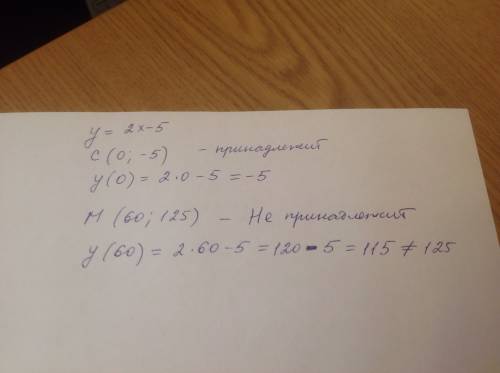 y = 2x-5
C (0; -5) - принадлежит
y(0) = 2·0-5 = -5
M (60; 125) - Не принадлежит
y(60) = 2·60-5 = 120-5 = 115 ≠ 125